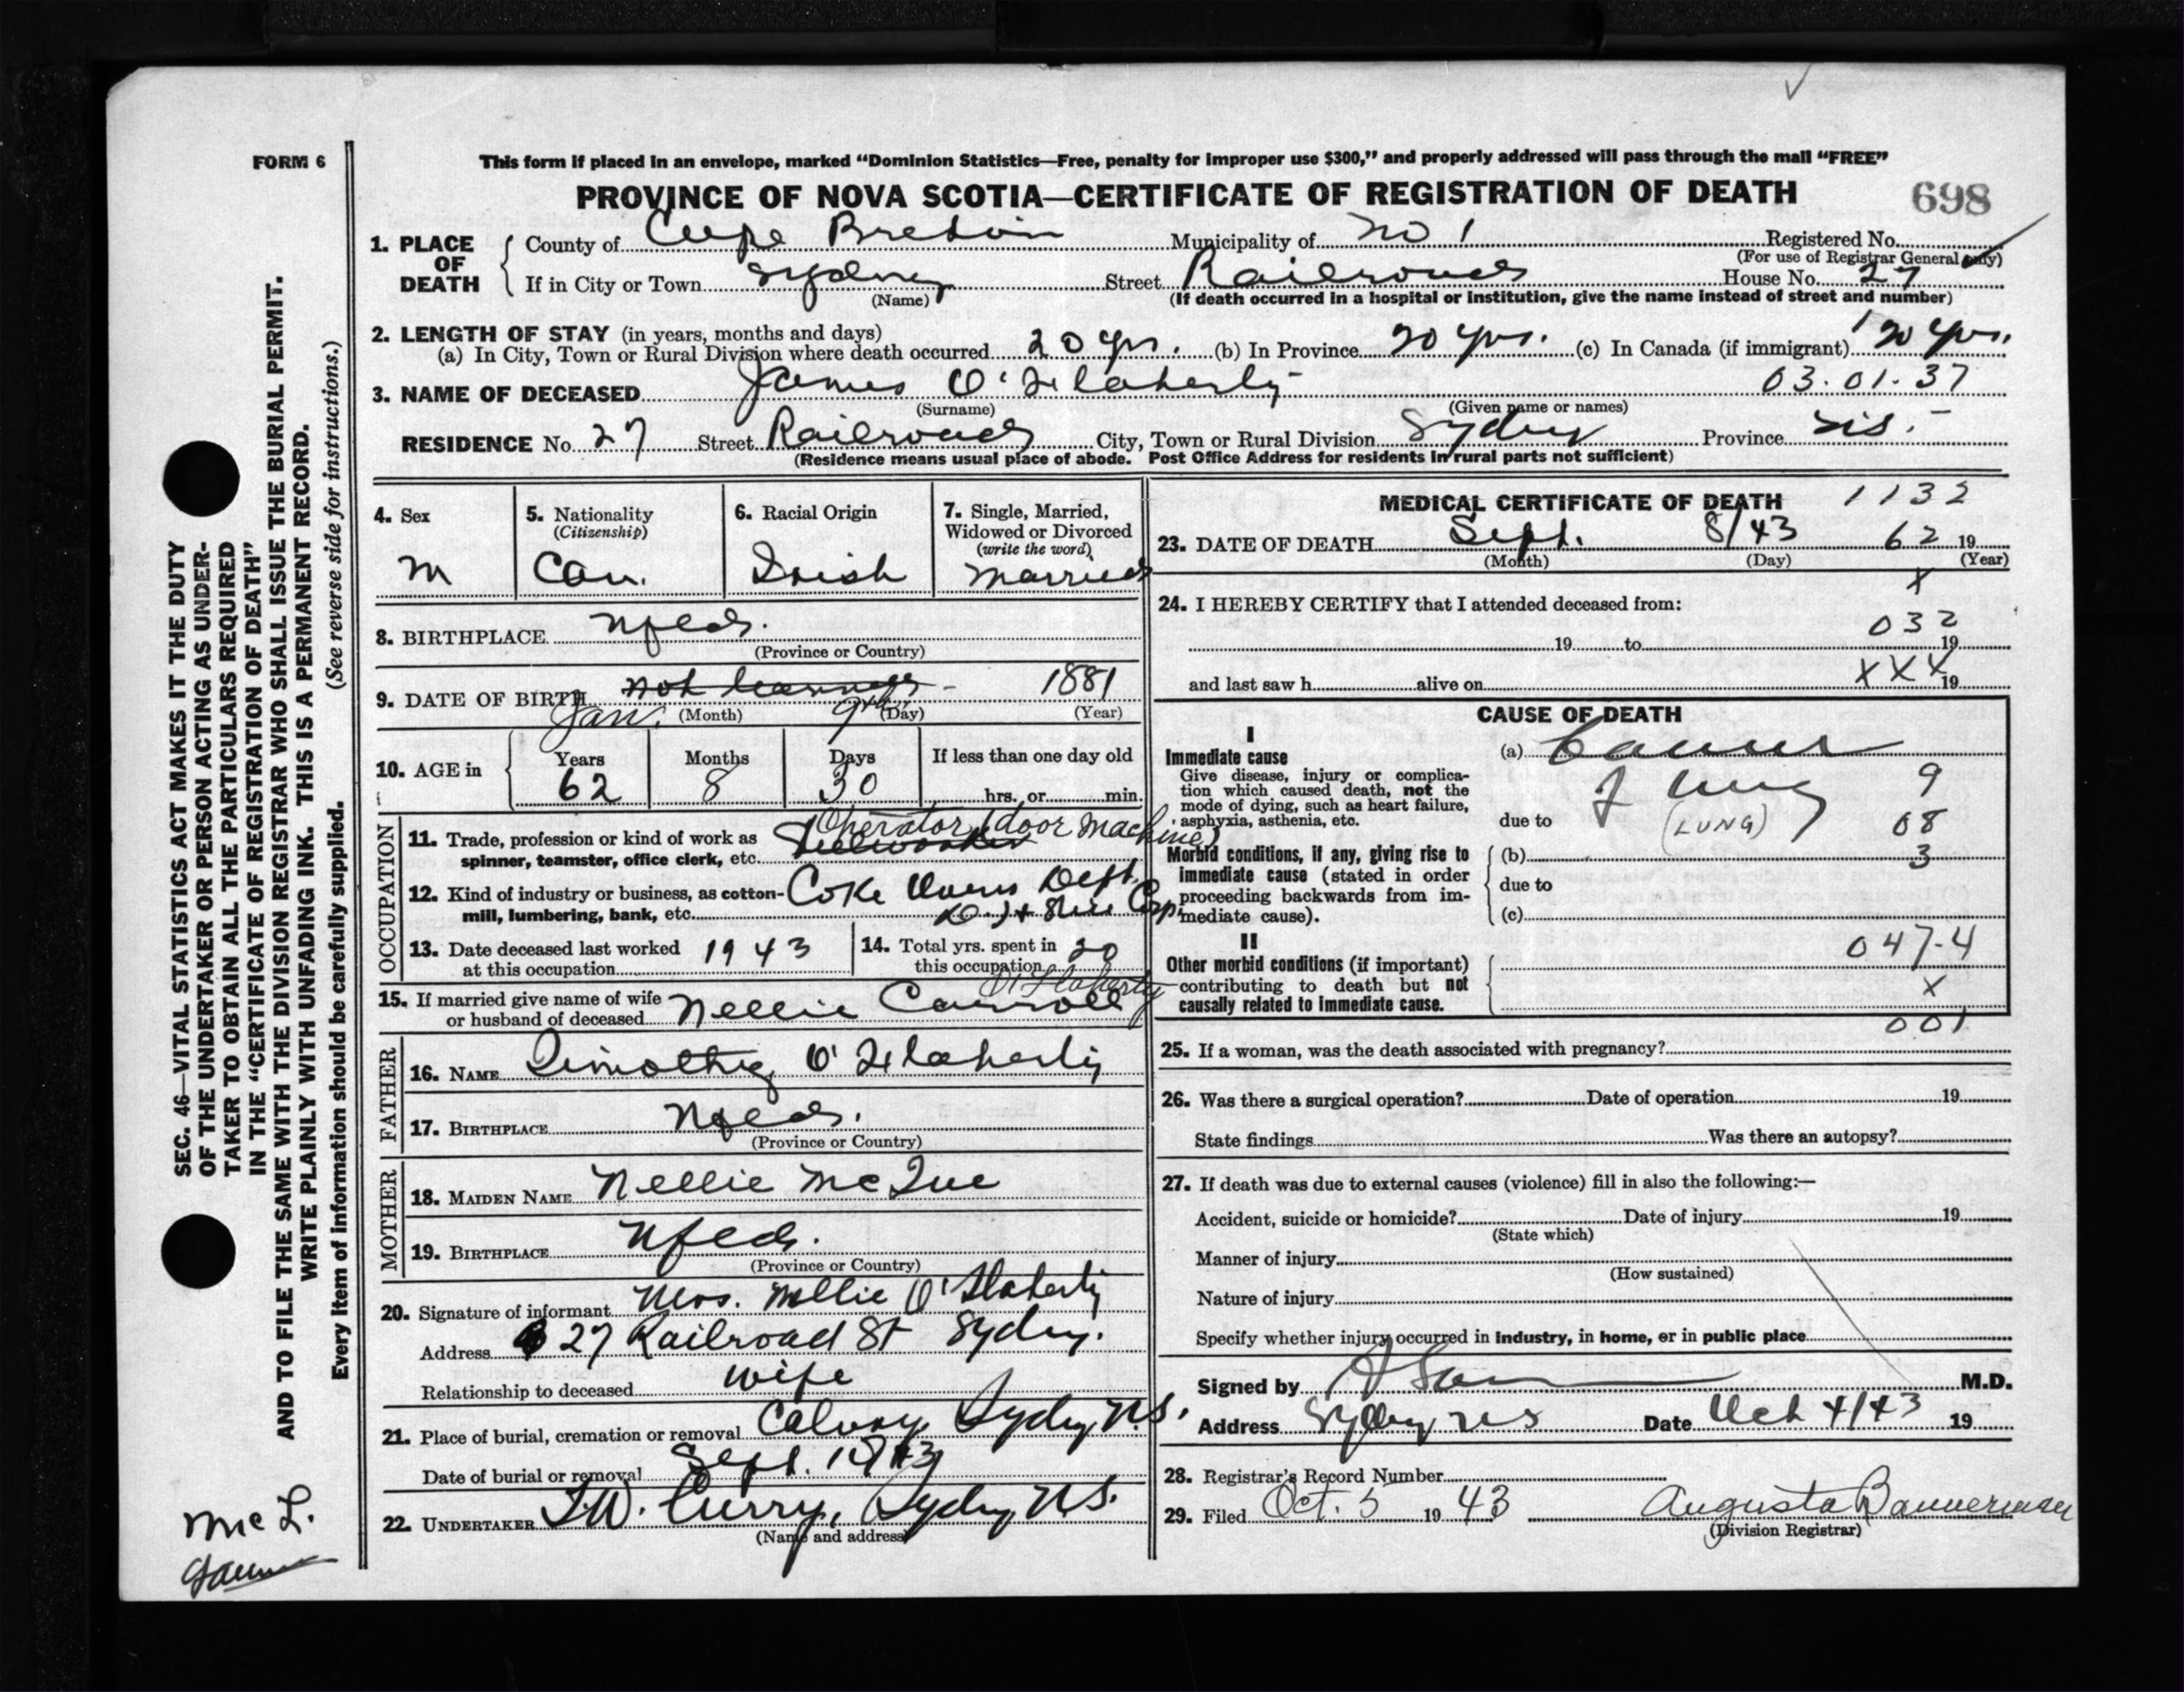 FORM 6
This form if placed in an envelope, marked “Dominion Statistics—Free, penalty for improper use $300,” and properly addressed will pass through the mail “FREE”
PROVINCE OF NOVA SCOTIA—CERTIFICATE OF REGISTRATION OF DEATH
698
1. PLACE OF DEATH
County of Cape Breton Municipality of No 1 Registered No.
(For use of Registrar General only)
If in City or Town Sydney Street Railroad House No. 27
(Name) (If death occurred in a hospital or institution, give the name instead of street and number)
2. LENGTH OF STAY (in years, months and days)
(a) In City, Town or Rural Division where death occurred 20 yrs. (b) In Province 20 yrs. (c) In Canada (if immigrant) 20 yrs.
3. NAME OF DECEASED James O'Flaherty 03.01.37
(Surname) (Given name or names)
RESIDENCE No. 27 Street Railroad City, Town or Rural Division Sydney Province N.S.
(Residence means usual place of abode. Post Office Address for residents in rural parts not sufficient)
4. Sex M
5. Nationality (Citizenship) Can.
6. Racial Origin Irish
7. Single, Married, Widowed or Divorced (write the word) Married
8. BIRTHPLACE Nfld.
(Province or Country)
9. DATE OF BIRTH 1881
Jan. (Month) 9th (Day) (Year)
10. AGE in Years 62 Months 8 Days 30 If less than one day old
hrs. or min.
OCCUPATION
11. Trade, profession or kind of work as spinner, teamster, office clerk, etc. Operator (door machine) Steelworker
12. Kind of industry or business, as cotton-mill, lumbering, bank, etc. Coke Ovens Dept.
Corp.
13. Date deceased last worked at this occupation 1943
14. Total yrs. spent in this occupation 20
15. If married give name of wife or husband of deceased Nellie Carroll O'Flaherty
FATHER
16. NAME Timothy O'Flaherty
17. BIRTHPLACE Nfld.
(Province or Country)
MOTHER
18. MAIDEN NAME Nellie McCue
19. BIRTHPLACE Nfld.
(Province or Country)
20. Signature of informant Mrs. Nellie O'Flaherty
Address 27 Railroad St Sydney.
Relationship to deceased wife
21. Place of burial, cremation or removal Calvary Sydney N.S.
Date of burial or removal Sept.
22. UNDERTAKER T.W. Curry, Sydney N.S.
(Name and address)
MEDICAL CERTIFICATE OF DEATH 1132
23. DATE OF DEATH Sept. 8/43 62 19
(Month) (Day) (Year)
X
24. I HEREBY CERTIFY that I attended deceased from:
032
19 to 19
XXX
and last saw h alive on 19
CAUSE OF DEATH
I
Immediate cause
Give disease, injury or complication which caused death, not the mode of dying, such as heart failure, asphyxia, asthenia, etc.
(a) Cancer
of lung 9
due to (LUNG) 08
Morbid conditions, if any, giving rise to immediate cause (stated in order proceeding backwards from immediate cause).
(b) 3
due to
(c)
II
Other morbid conditions (if important) contributing to death but not causally related to immediate cause.
047-4
X
001
25. If a woman, was the death associated with pregnancy?
26. Was there a surgical operation? Date of operation 19
State findings Was there an autopsy?
27. If death was due to external causes (violence) fill in also the following:—
Accident, suicide or homicide? Date of injury 19
(State which)
Manner of injury
(How sustained)
Nature of injury
Specify whether injury occurred in industry, in home, or in public place
Signed by M.D.
Address Sydney NS Date Oct 4/43 19
28. Registrar's Record Number
29. Filed Oct. 5 1943 Augusta Bannerman
(Division Registrar)
SEC. 46—VITAL STATISTICS ACT MAKES IT THE DUTY
OF THE UNDERTAKER OR PERSON ACTING AS UNDER-
TAKER TO OBTAIN ALL THE PARTICULARS REQUIRED
IN THE “CERTIFICATE OF REGISTRATION OF DEATH”
AND TO FILE THE SAME WITH THE DIVISION REGISTRAR WHO SHALL ISSUE THE BURIAL PERMIT.
WRITE PLAINLY WITH UNFADING INK. THIS IS A PERMANENT RECORD.
Every item of information should be carefully supplied. (See reverse side for instructions.)
Mc L.